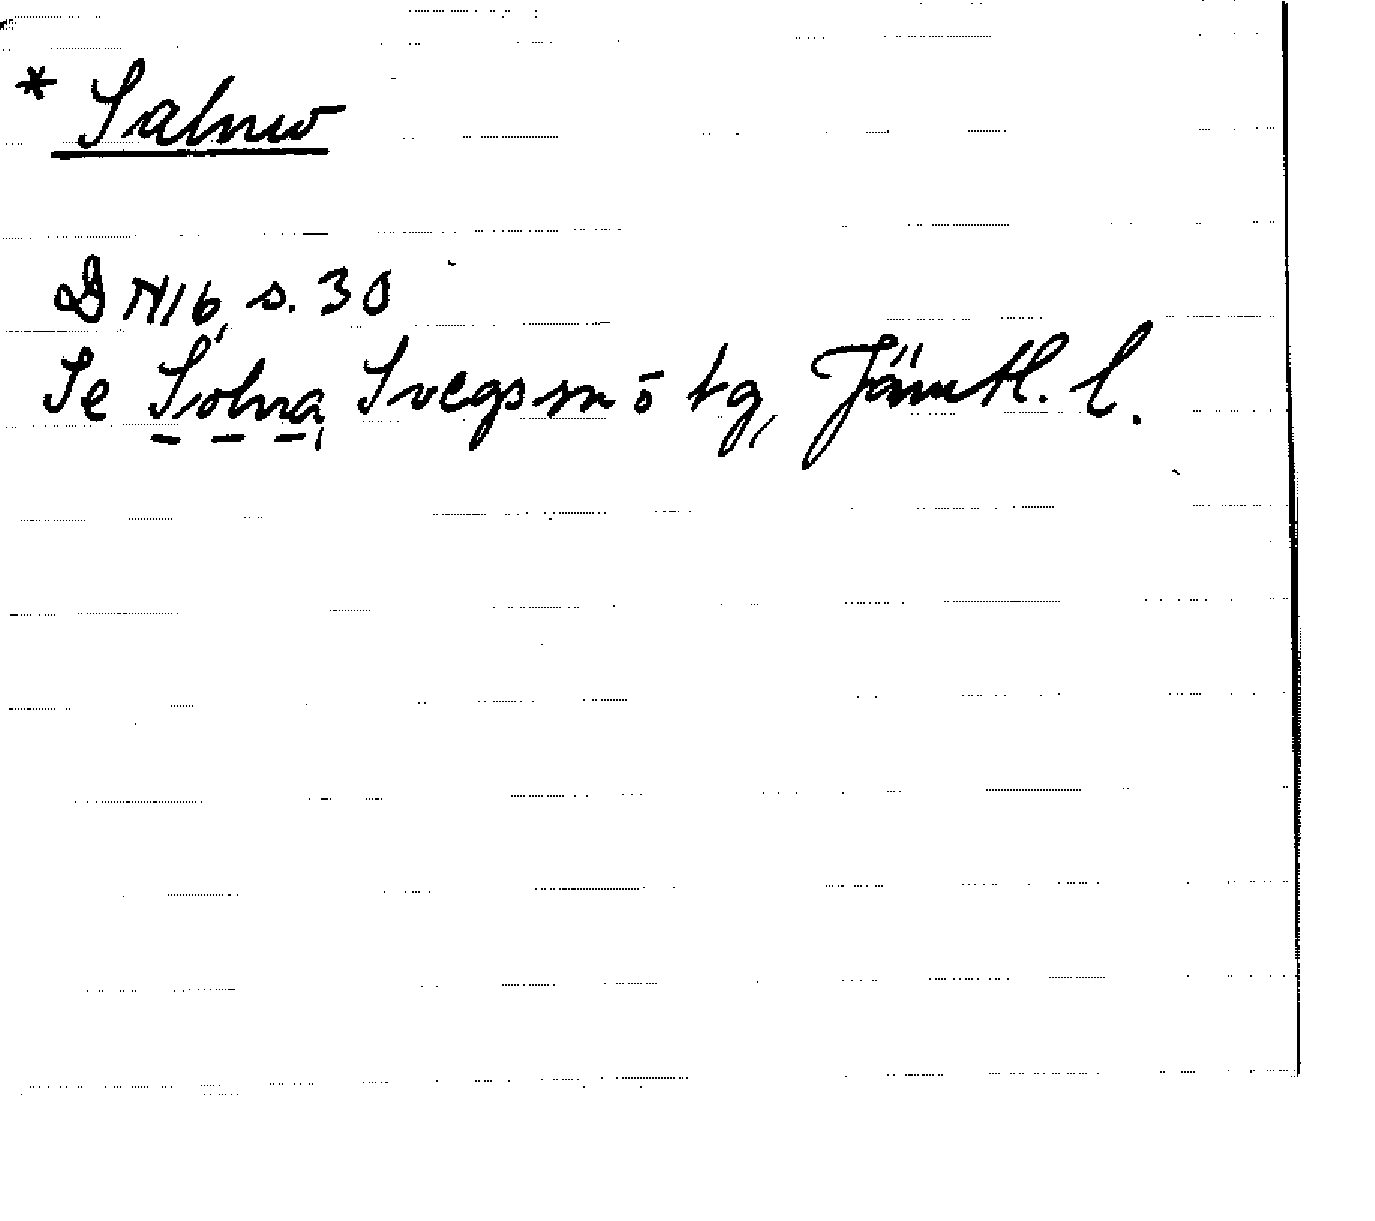 * Salnw
DN16, s. 30
Se Solna, Svegs sn o tg, Jämtl. l.